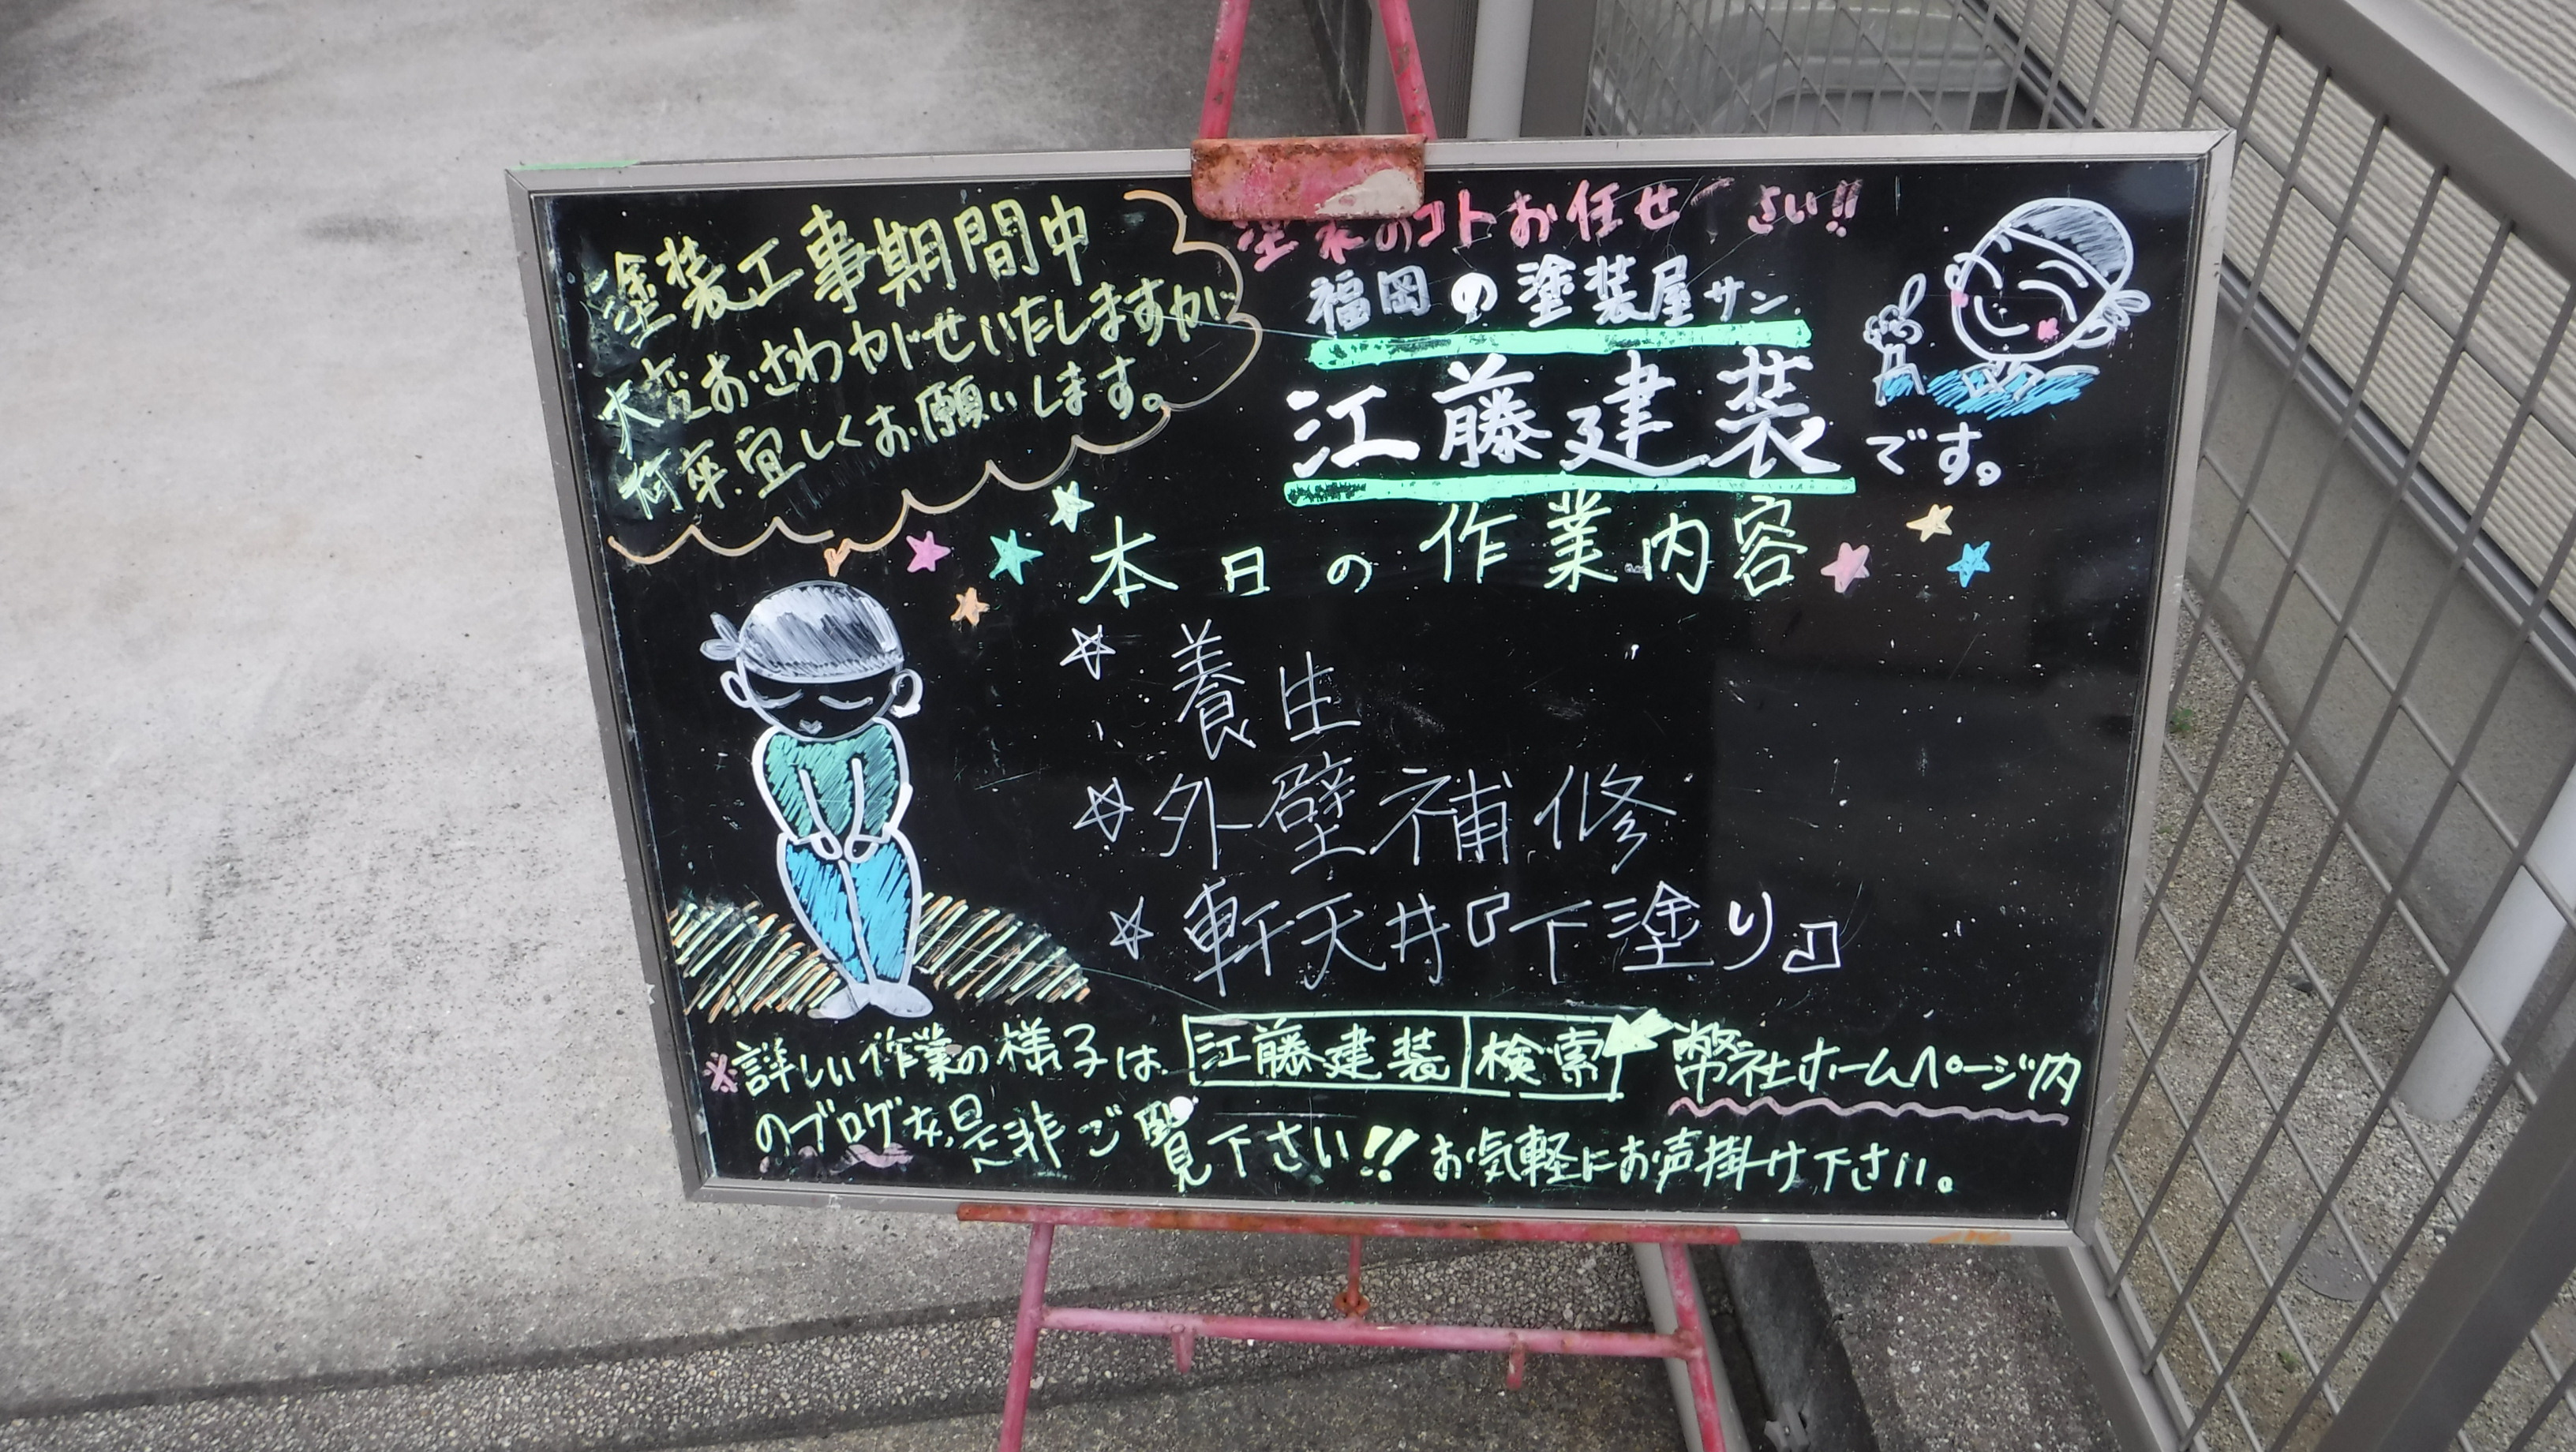 塗装工事期間中
大変おさわがせいたしますが
何卒宜しくお願いします。
塗装のコトお任せ さい!!
福岡の塗装屋サン
江藤建装です。
本日の作業内容
☆ 養生
☆ 外壁補修
☆ 軒天井『下塗り』
※詳しい作業の様子は 江藤建装 検索 弊社ホームページ内
のブログを是非ご覧下さい!! お気軽にお声掛け下さい。